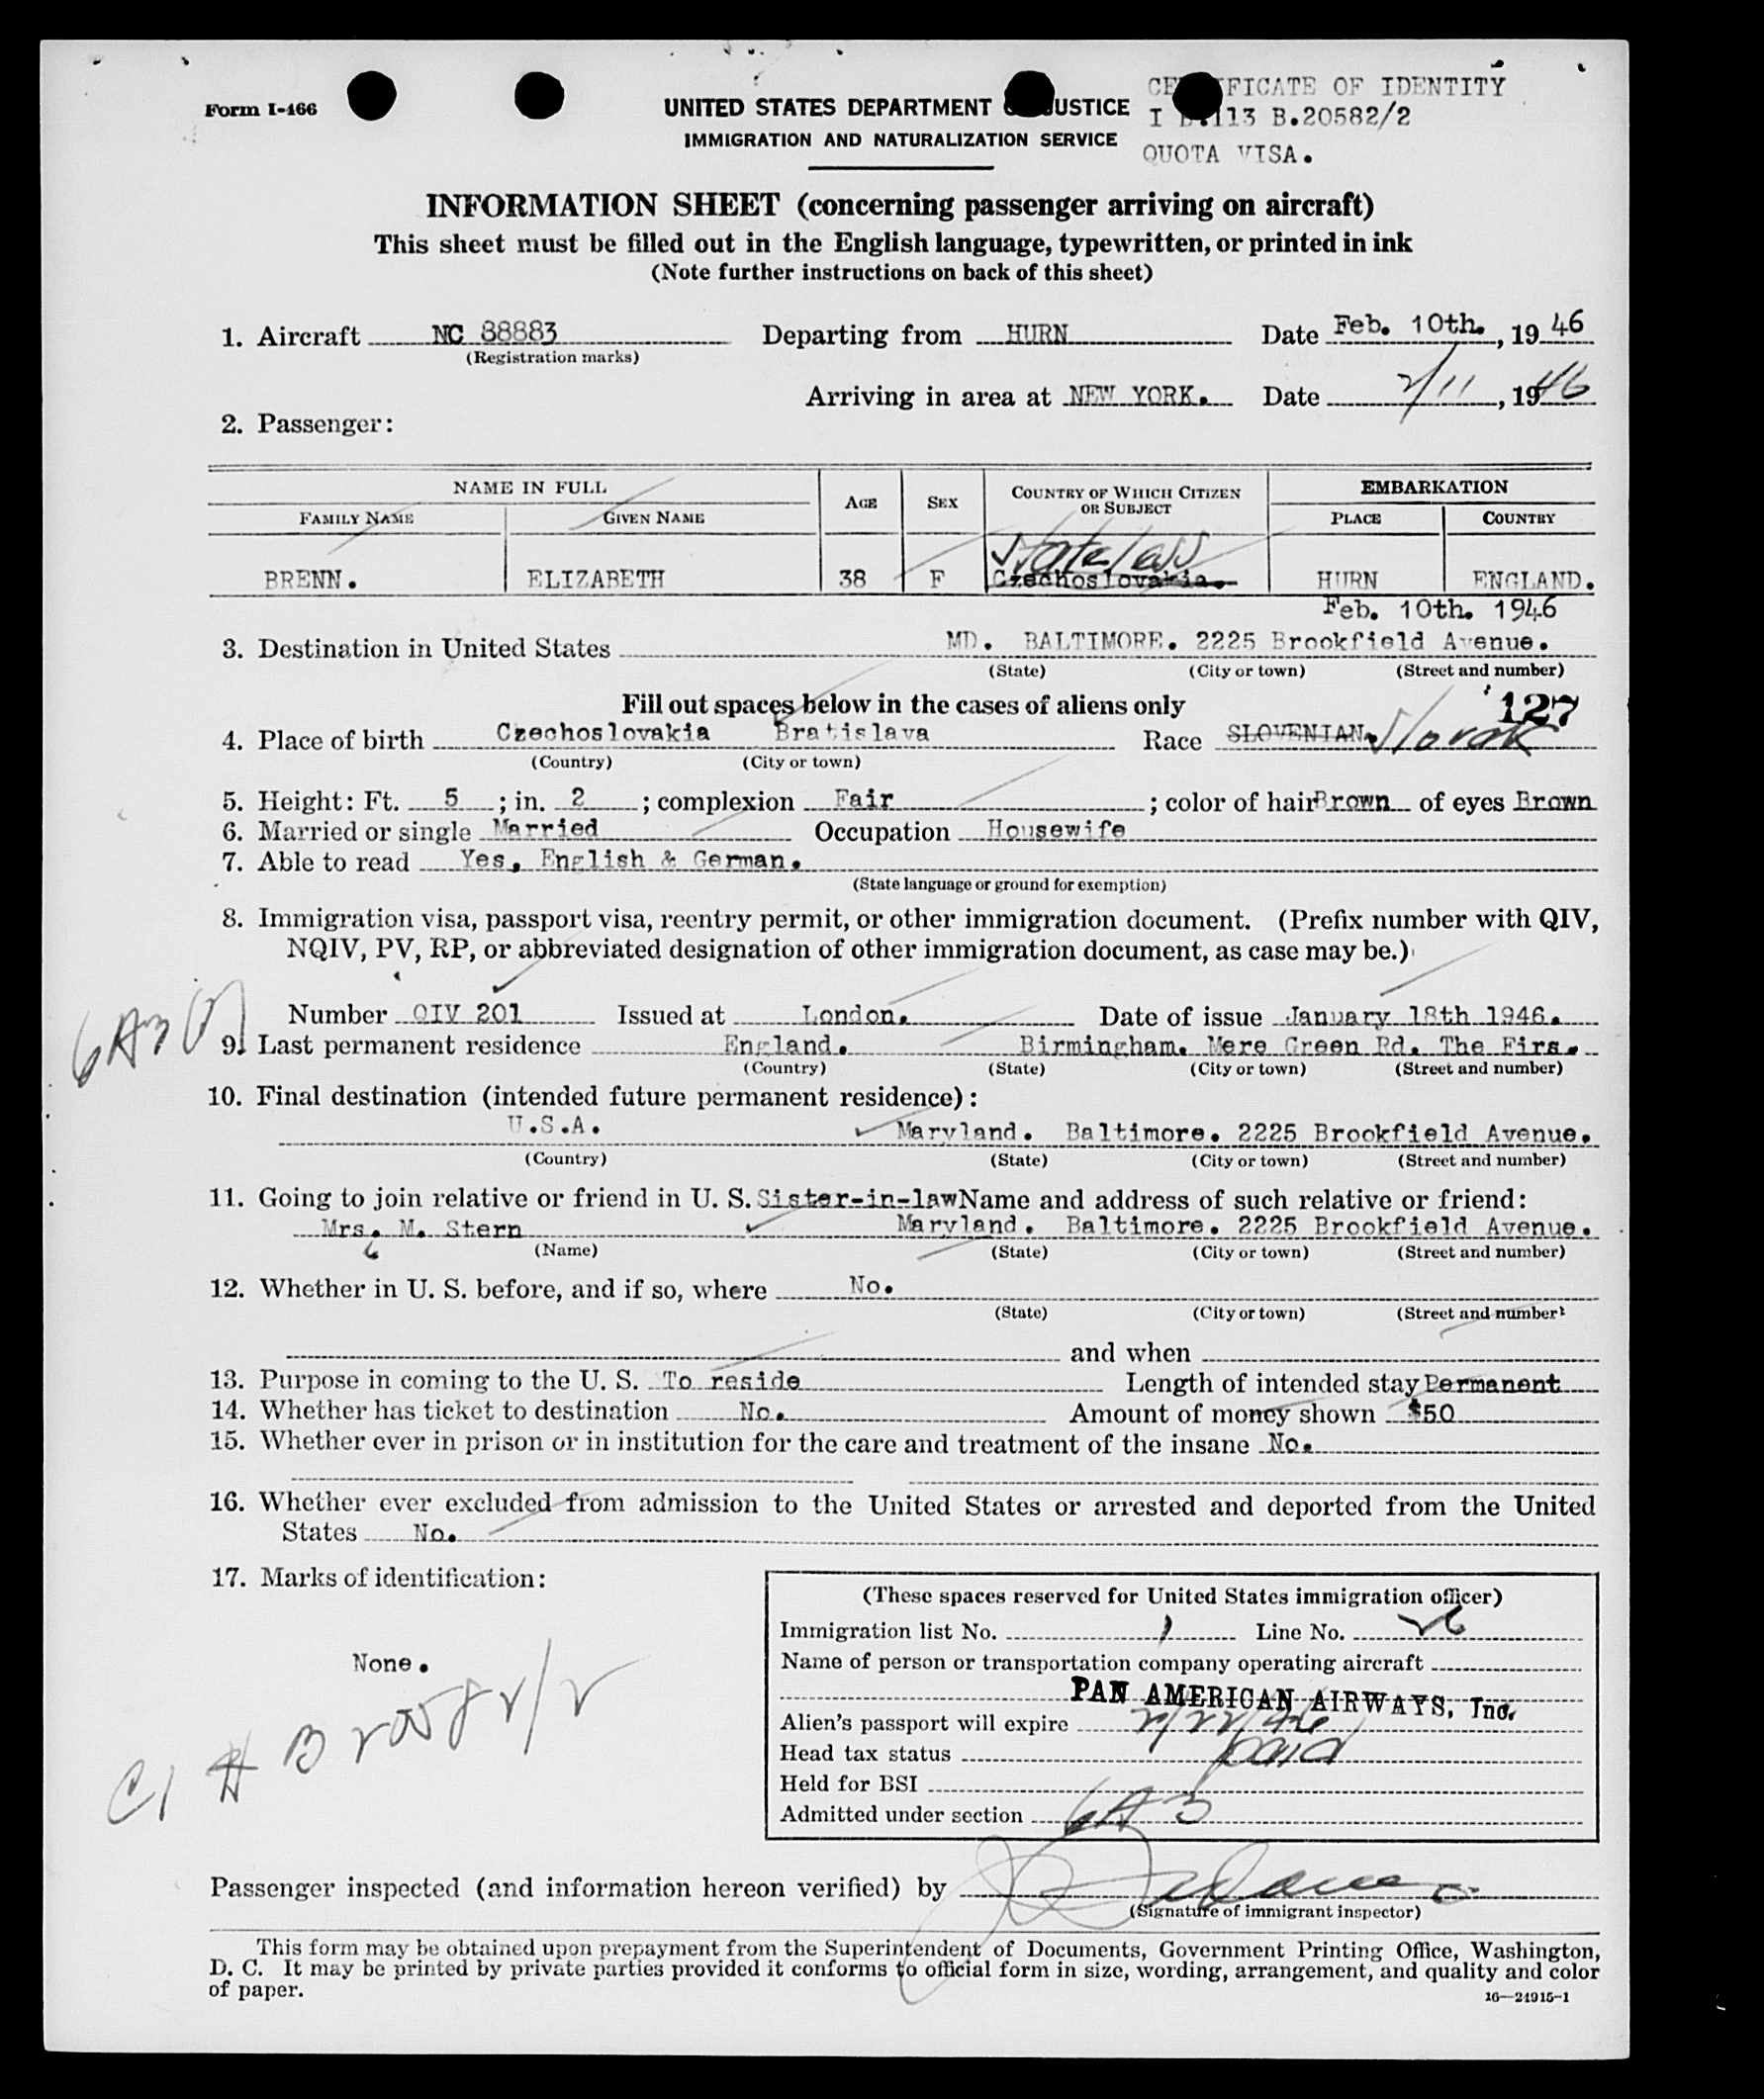 Form I-466
UNITED STATES DEPARTMENT JUSTICE
IMMIGRATION AND NATURALIZATION SERVICE
FICATE OF IDENTITY
I 113 B.20582/2
QUOTA VISA.
INFORMATION SHEET (concerning passenger arriving on aircraft)
This sheet must be filled out in the English language, typewritten, or printed in ink
(Note further instructions on back of this sheet)
1. Aircraft NC 88883 Departing from HURN Date Feb. 10th. , 19 46
(Registration marks)
Arriving in area at NEW YORK. Date 2/11 , 1946
2. Passenger:
NAME IN FULL AGE SEX COUNTRY OF WHICH CITIZEN OR SUBJECT EMBARKATION
FAMILY NAME GIVEN NAME PLACE COUNTRY
Stateless
BRENN. ELIZABETH 38 F Czechoslovakia. HURN ENGLAND.
Feb. 10th. 1946
3. Destination in United States MD. BALTIMORE. 2225 Brookfield Avenue.
(State) (City or town) (Street and number)
Fill out spaces below in the cases of aliens only 127
4. Place of birth Czechoslovakia Bratislava Race SLOVENIAN. Slovak
(Country) (City or town)
5. Height: Ft. 5 ; in. 2 ; complexion Fair ; color of hair Brown of eyes Brown
6. Married or single Married Occupation Housewife
7. Able to read Yes, English & German.
(State language or ground for exemption)
8. Immigration visa, passport visa, reentry permit, or other immigration document. (Prefix number with QIV,
NQIV, PV, RP, or abbreviated designation of other immigration document, as case may be.)
6A3
Number QIV 201 Issued at London. Date of issue January 18th 1946.
9. Last permanent residence England. Birmingham. Mere Green Rd. The Firs.
(Country) (State) (City or town) (Street and number)
10. Final destination (intended future permanent residence):
U.S.A. Maryland. Baltimore. 2225 Brookfield Avenue.
(Country) (State) (City or town) (Street and number)
11. Going to join relative or friend in U. S. Sister-in-law Name and address of such relative or friend:
Mrs. M. Stern Maryland. Baltimore. 2225 Brookfield Avenue.
(Name) (State) (City or town) (Street and number)
12. Whether in U. S. before, and if so, where No.
(State) (City or town) (Street and number)
and when
13. Purpose in coming to the U. S. To reside Length of intended stay Permanent
14. Whether has ticket to destination No. Amount of money shown $50
15. Whether ever in prison or in institution for the care and treatment of the insane No.
16. Whether ever excluded from admission to the United States or arrested and deported from the United
States No.
17. Marks of identification:
None.
(These spaces reserved for United States immigration officer)
Immigration list No. 1 Line No. 26
Name of person or transportation company operating aircraft
PAN AMERICAN AIRWAYS, Inc.
Alien's passport will expire
Head tax status paid
Held for BSI
Admitted under section 6A3
CI # B 20582/2
Passenger inspected (and information hereon verified) by
(Signature of immigrant inspector)
This form may be obtained upon prepayment from the Superintendent of Documents, Government Printing Office, Washington,
D. C. It may be printed by private parties provided it conforms to official form in size, wording, arrangement, and quality and color
of paper.
16—24915-1